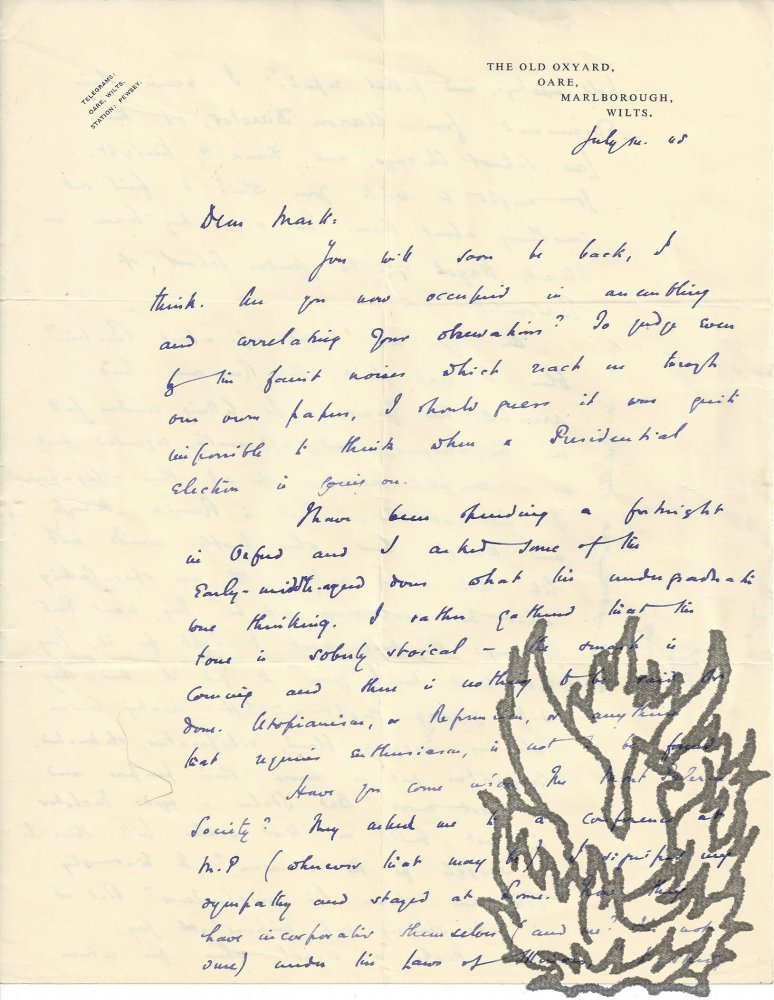 TELEGRAMS:
OARE, WILTS.
STATION: PEWSEY.
THE OLD OXYARD,
OARE,
MARLBOROUGH,
WILTS.
July 48
Dear Mark:
You will soon be back, I
think. Are you now occupied in assembling
and correlating your observations? To judge even
by the faint noises which reach us through
our own papers, I should guess it was quite
impossible to think when a Presidential
Election is going on.
I have been spending a fortnight
in Oxford and I asked some of the
Early-middle-aged dons what the undergraduates
were thinking. I rather gathered that the
tone is soberly stoical – the smash is
coming and there is nothing to be said or
done. Utopianism, or Reformism, or anything
that requires enthusiasm, is not to be found
Have you come across the Mont Pelerin
Society? They asked me to a conference at
M.P (wherever that may be) I signified my
sympathy and stayed at home. Now they
have incorporated themselves (and me? I'm not
sure) under the Laws of